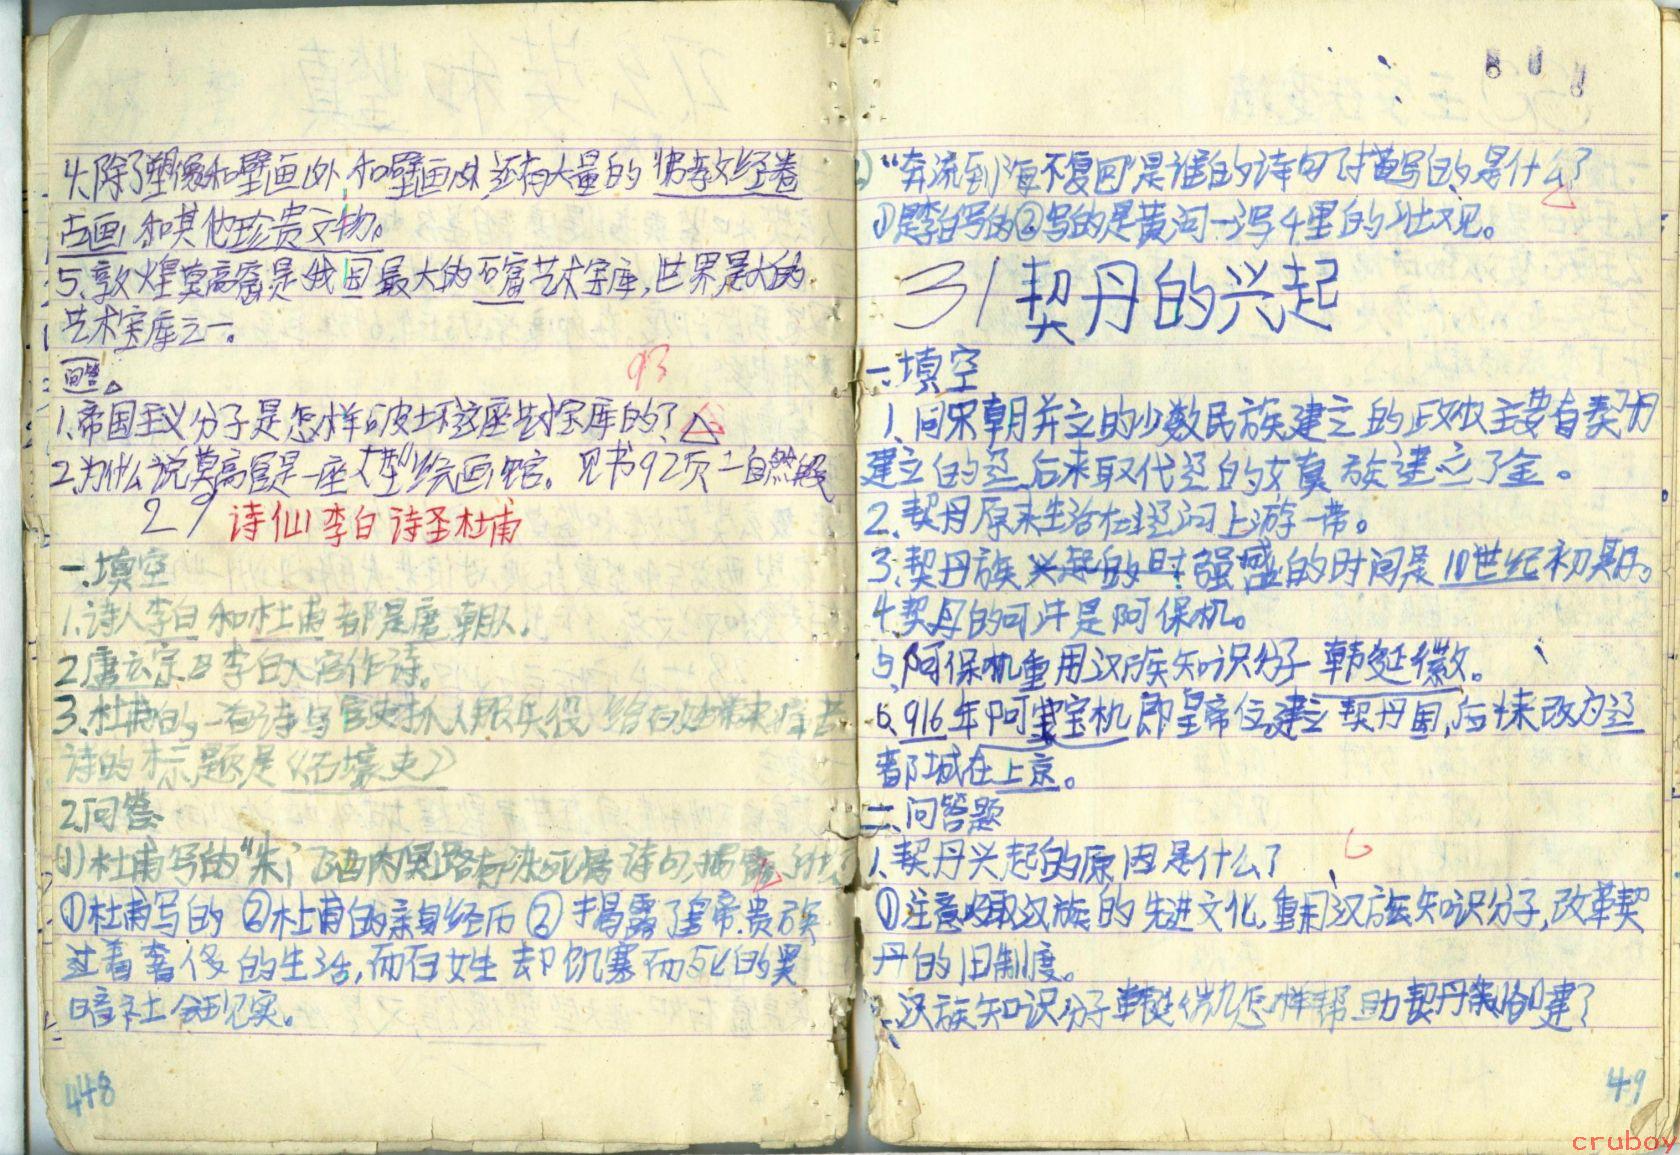 4.除了塑像和壁画以外 和壁画以外 还有大量的 佛教经卷
古画 和其他珍贵文物。
5.敦煌莫高窟是我国最大的石窟艺术宝库,世界最大的
艺术宝库之一。
问答
93
1.帝国主义分子是怎样破坏这座艺术宝库的?
2.为什么说莫高窟是一座大型绘画馆。见书92页二自然段
29 诗仙李白 诗圣杜甫
一.填空
1.诗人李白和杜甫都是唐朝人.
2.唐玄宗 李白入宫作诗。
3.杜甫的一首诗写官吏抓人服兵役
诗的标题是《石壕吏》
2.问答
(1)杜甫写的"朱门酒肉臭路有冻死骨诗句,揭露了什么
①杜甫写的 ②杜甫的亲身经历 ③揭露了皇帝.贵族
过着奢侈的生活,而百姓却饥寒而死的黑
暗社会现实。
448
"奔流到海不复回"是谁的诗句?描写的是什么?
①是李白写的②写的是黄河一泻千里的壮观。
31契丹的兴起
一.填空
1.同宋朝并立的少数民族建立的政权主要有契丹
建立的辽后来取代辽的女真族建立了金。
2.契丹原来生活在辽河上游一带。
3.契丹族兴起的时强盛的时间是10世纪初期。
4.契丹的可汗是阿保机。
5.阿保机重用汉族知识分子韩延徽。
6.916年阿宝机即皇帝位,建立契丹国,后来改为辽
都城在上京。
二、问答题
1.契丹兴起的原因是什么?
①注意吸取汉族的先进文化.重用汉族知识分子,改革契
丹的旧制度。
汉族知识分子韩延徽怎样帮助契丹 建?
49
cruboy